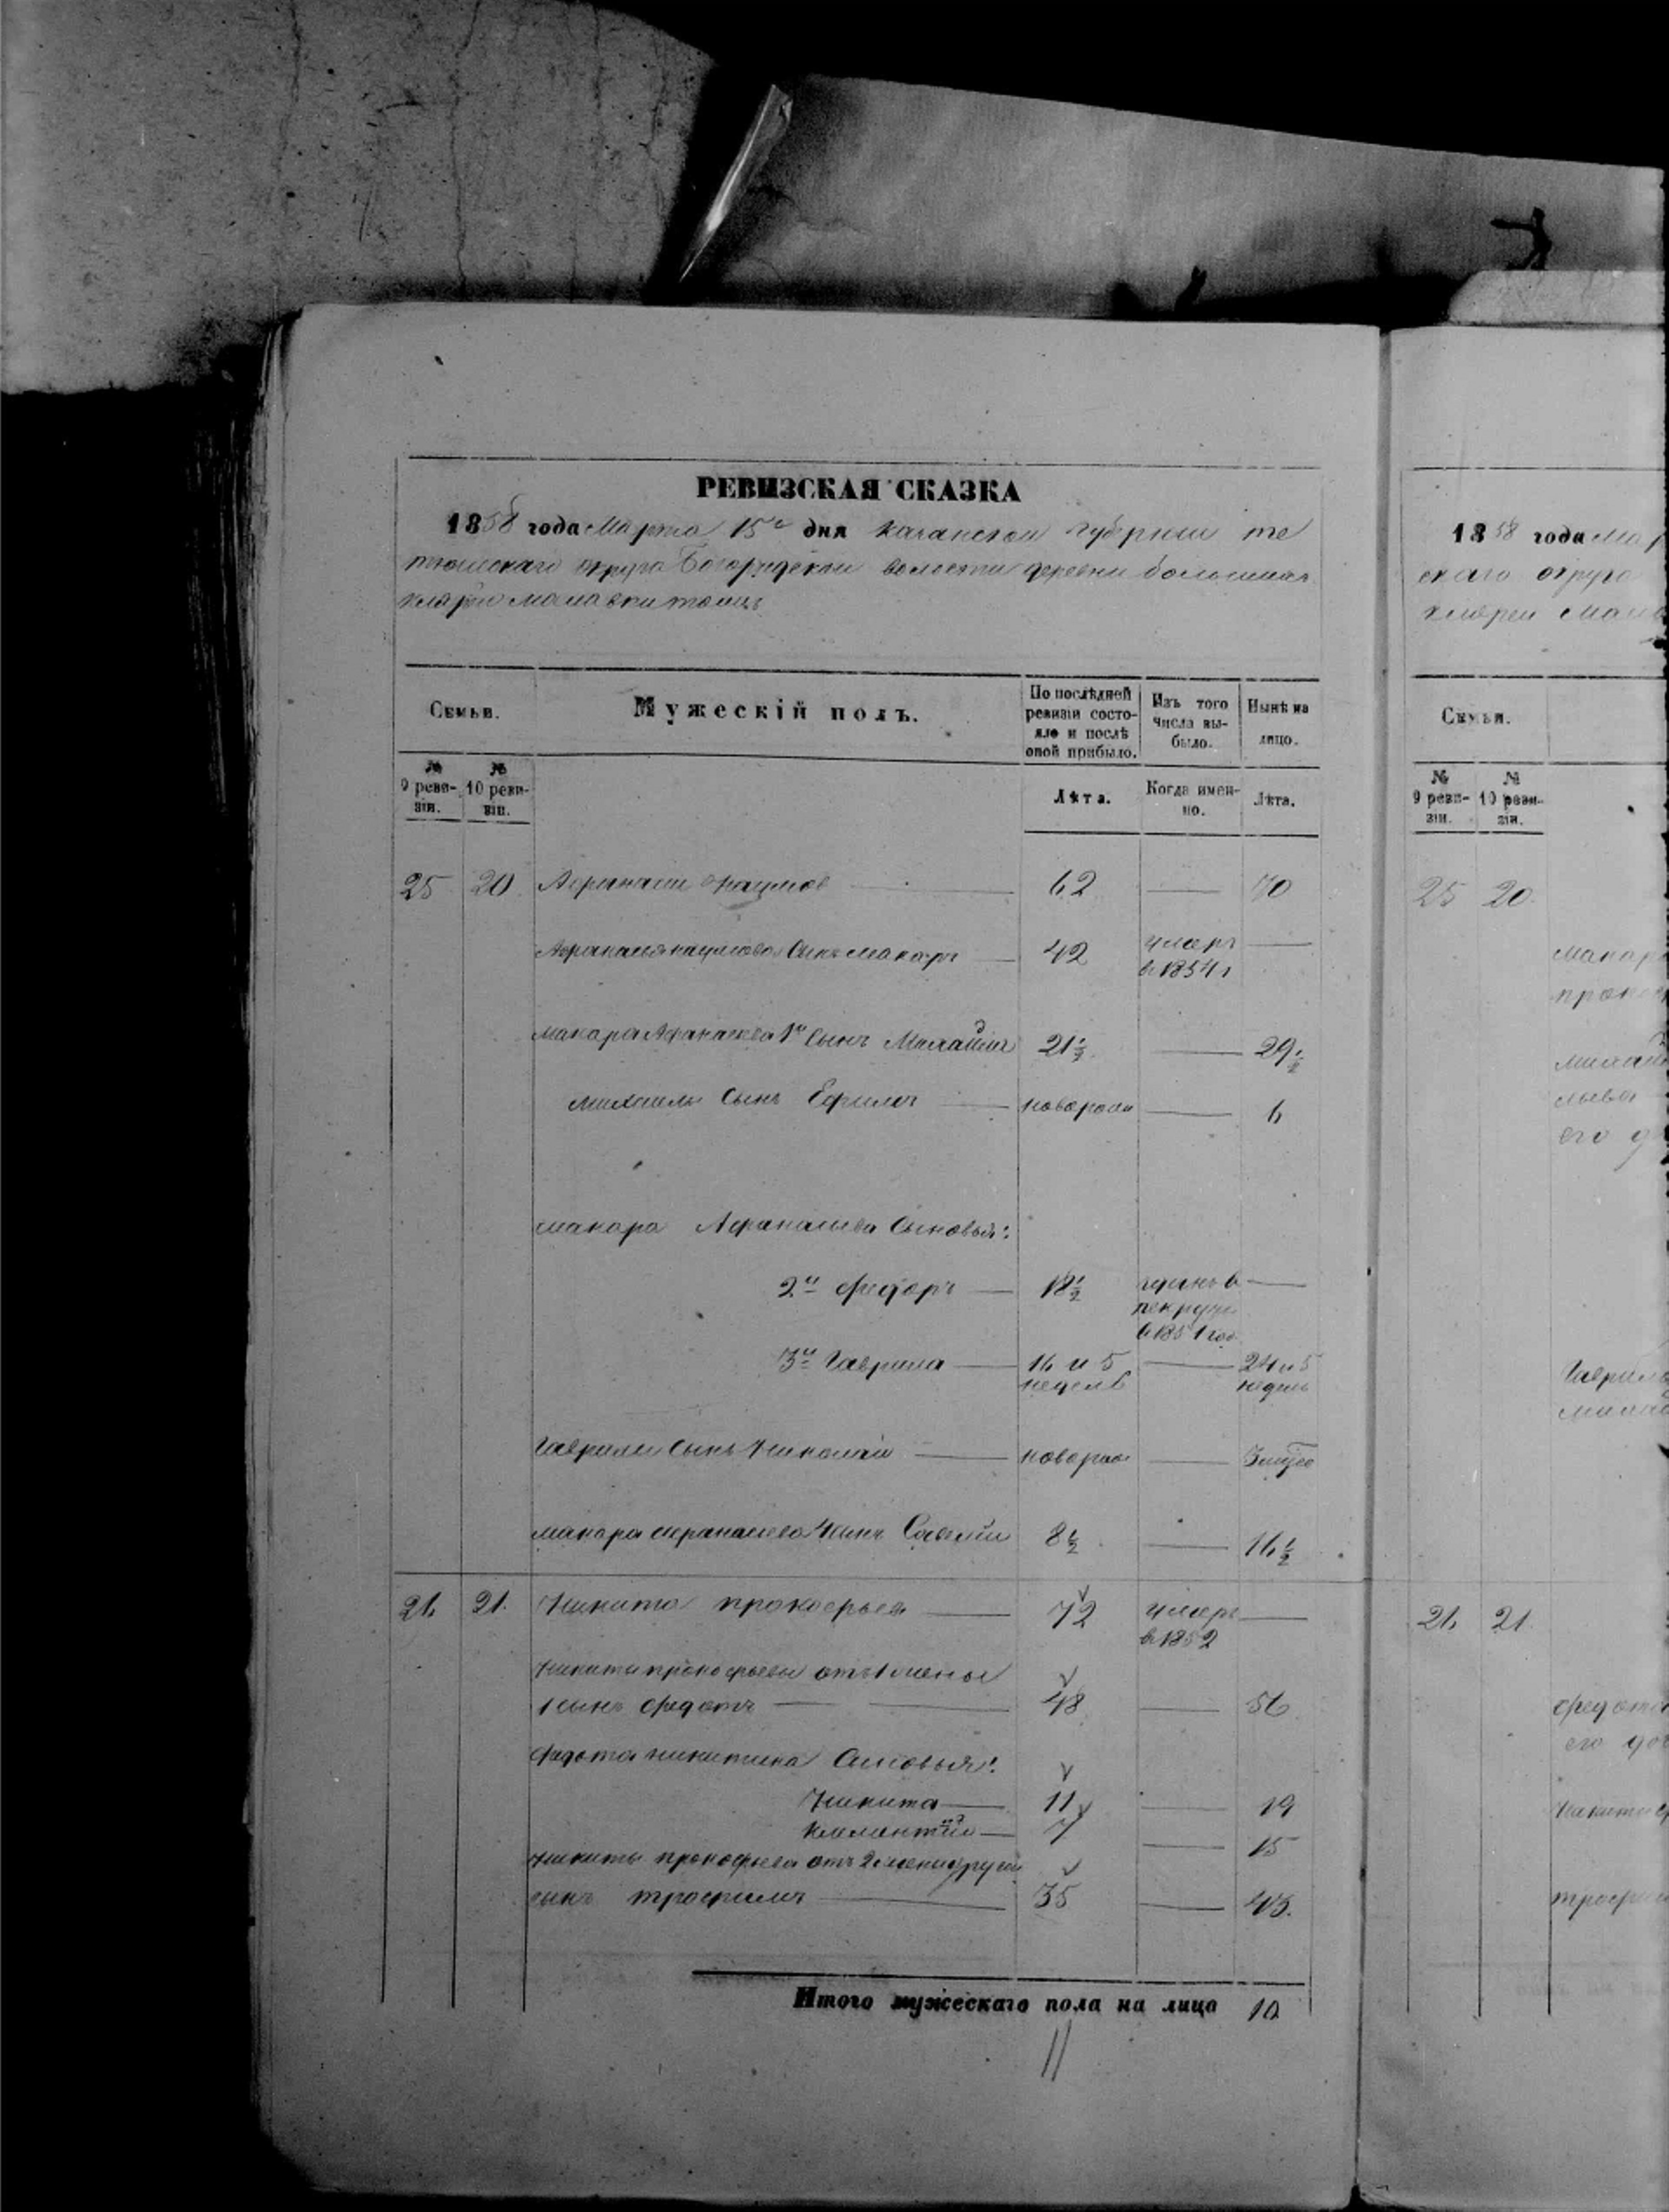 РЕВИЗСКАЯ СКАЗКА
1858 года Марта 15го дня Казанской губернии те
тюшскаго округа Богородской волости деревни большихъ
Семьи.
Мужескій полъ.
По послѣдней ревизіи состояло и послѣ оной прибыло.
Изъ того числа выбыло.
Нынѣ на лицо.
№ 9 ревизіи.
№ 10 ревизіи.
Лѣта.
Когда именно.
Лѣта.
25 20 Афанасий Наумов 62 — 70
Афанасия наумова Сынъ макаръ 42 умеръ в 1854 г —
макара Афанасьева 1й Сынъ Михайлъ 21 1/2 — 29 1/2
михаилы Сынъ Ефимъ новорож — 6
макара Афанасьева Сыновья:
2й федоръ 18 1/2 в рекруты в 1851 год —
3й Гаврила 16 и 5 недель — 24 и 5 недель
Гаврилы Сынъ Николай новорож —
макара афанасьева 4 сынъ Савелий 8 1/2 — 16 1/2
26 21. Никита прокофьев 72 умеръ в 1852 —
Никиты прокофьева отъ 1 жены
1 сынъ федотъ 48 — 56
федота никитина Сыновья:
Никита 11 — 19
7 — 15
Никиты прокофьева отъ 2 жены другой
сынъ трофимъ 35 — 43.
Итого мужескаго пола на лицо 10
1858 года Мар
скаго округа
Семьи.
№ 9 ревизіи.
№ 10 ревизіи.
25 20.
макара
михай
его
Гаврилы
26 21.
федота
его доч
Никиты
трофим